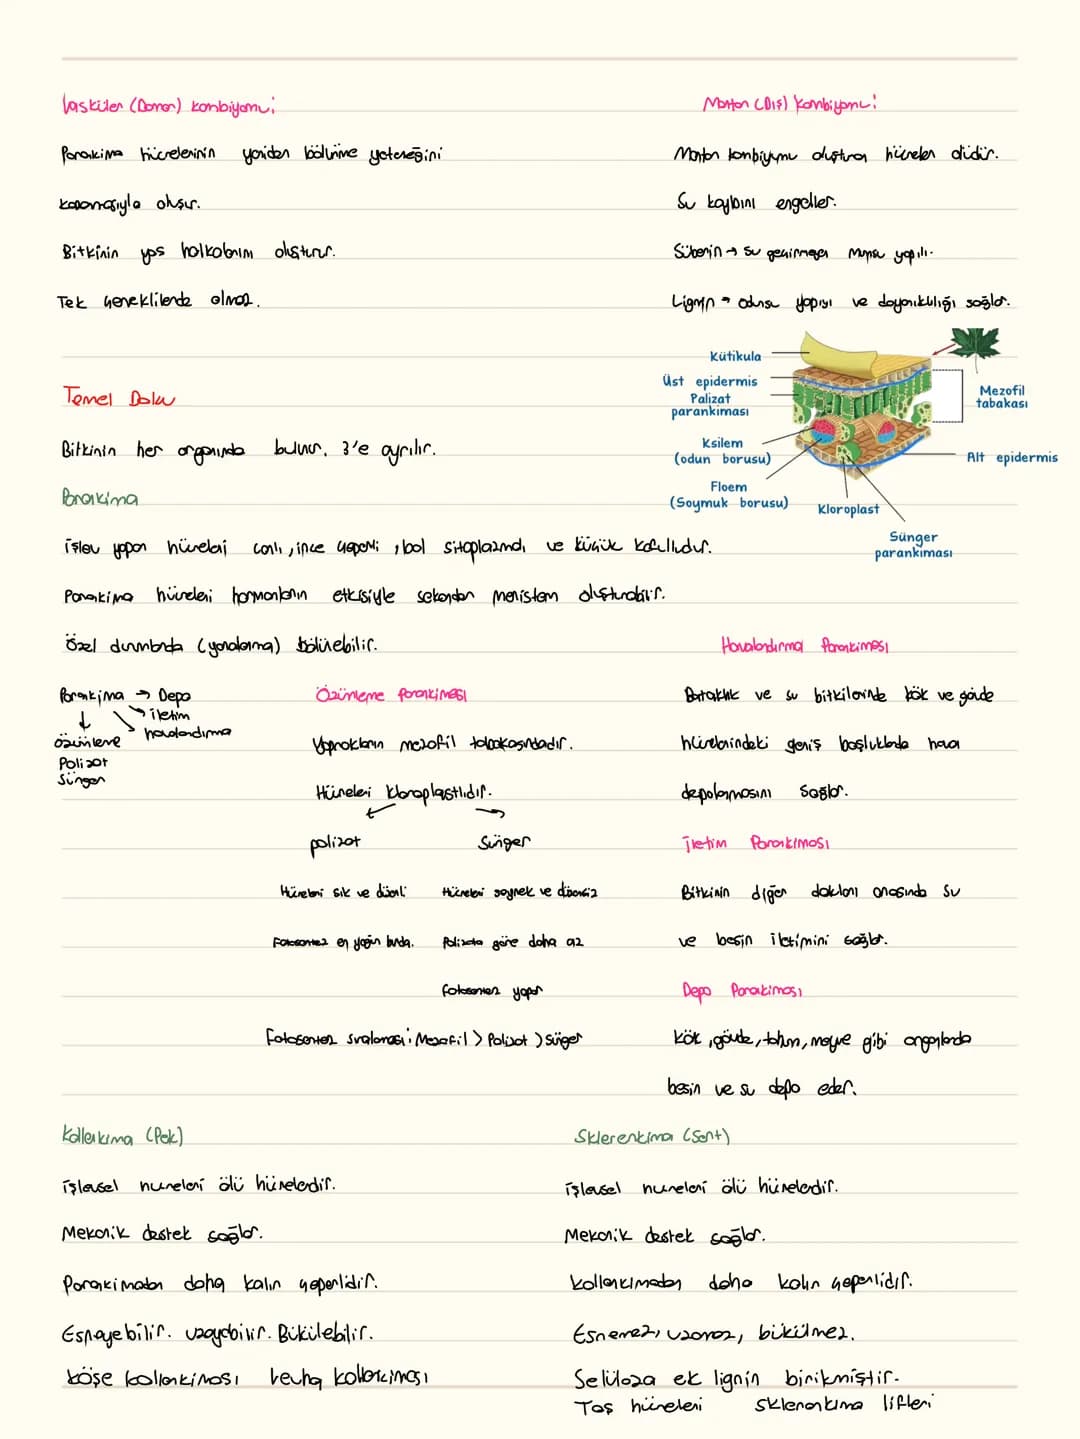 Vasküler (Damar) kambiyomu;
Parankima hücrelerinin yeniden bölünme yeteneğini
kazanmasıyla oluşur.
Bitkinin yaş halkalarını oluşturur.
Tek çeneklilerde olmaz.
Mantar (Dış) kambiyomu:
Mantar kambiyumu oluşturan hücreler ölüdür.
Su kaybını engeller.
Süberin → su geçirmeyen mumsu yapılı.
Lignin → odunsu yapıyı ve dayanıklılığı sağlar.
Kütikula
Üst epidermis
Palizat
parankiması
Ksilem
(odun borusu)
Floem
(Soymuk borusu)
Kloroplast
Sünger
parankiması
Alt epidermis
Mezofil
tabakası
Temel Doku
Bitkinin her organında bulunur. 3'e ayrılır.
Parankima
işlev yapan hücreleri canlı, ince çeperli, bol sitoplazmalı ve küçük kofulludur.
Parankima hücreleri hormonların etkisiyle sekonder meristem oluşturabilir.
Özel durumlarda (yaralanma) bölünebilir.
Parankima → Depo
iletim
havalandırma
özümleme
Polizot
Sünger
Özümleme Parankiması
Yaprakların mezofil tabakasındadır.
Hücreleri kloroplastlıdır.
polizot
Sünger
Hücreleri sık ve düzenli
Hücreleri seyrek ve düzensiz
Fotosentez en yoğun burda.
Polizota göre daha az
fotosentez yapar
Fotosentez sıralaması: Mezofil > Polizot > Sünger
Havalandırma Parankiması
Bataklık ve su bitkilerinde kök ve gövde
hücrelerindeki geniş boşluklarda hava
depolanmasını sağlar.
İletim Parankiması
Bitkinin diğer dokuları arasında su
ve besin iletimini sağlar.
Depo Parankiması
Kök, gövde, tohum, meyve gibi organlarda
besin ve su depo eder.
Kollenkima (Pek)
işlevsel hücreleri ölü hücrelerdir.
Mekanik destek sağlar.
Parankimadan daha kalın çeperlidir.
Esneyebilir. uzayabilir. Bükülebilir.
köşe kollenkiması levha kollenkiması
Sklerenkima (Sert)
işlevsel hücreleri ölü hücrelerdir.
Mekanik destek sağlar.
kollenkimadan daha kalın çeperlidir.
Esnemez, uzamaz, bükülmez.
Selüloza ek lignin birikmiştir.
Taş hücreleri sklerankima lifleri